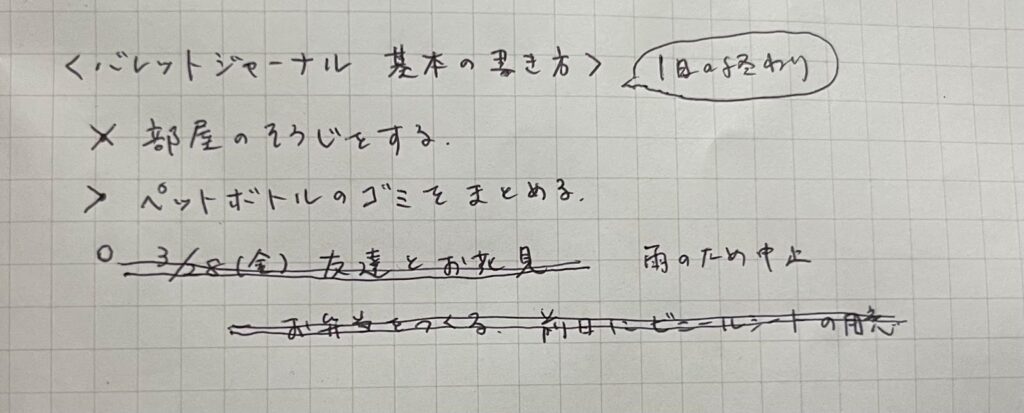 <バレットジャーナル 基本の書き方> 1日の終わり
× 部屋のそうじをする.
> ペットボトルのゴミをまとめる.
○ 3/28(金) 友達とお花見 雨のため中止
ー お弁当をつくる. 前日にビニールシートの用意